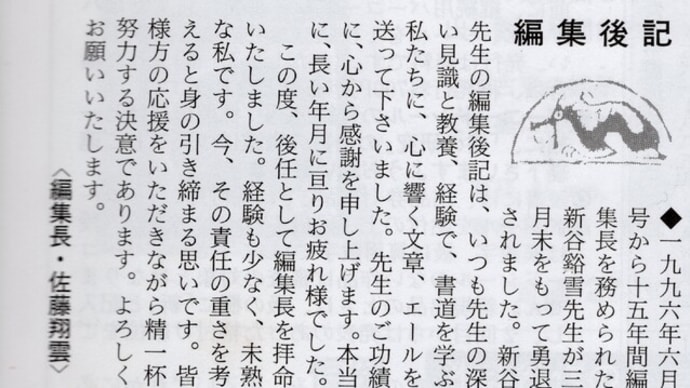 編集後記
◆一九九六年六月
号から十五年間編
集長を務められた
新谷谿雪先生が三
月末をもつて勇退
されました 新谷
先生の編集後記は、いつも先生の深
い見識と教養、経験で、書道を学ぶ
私たちに、心に響く文章、エールを
送って下さいました。先生のご功績
に、心から感謝を申し上げます。本当
に、長い年月に亘りお疲れ様でした。
この度、後任として編集長を拝命
いたしました。経験も少なく、未熟
な私です。今、その責任の重さを考
えると身の引き締まる思いです。皆
様方の応援をいただきながら精一杯
努力する決意であります。よろしく
お願いいたします。
〈編集長・佐藤翔雲〉